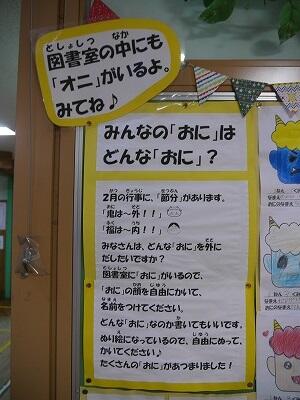 図書室の中にも
「オニ」がいるよ。
みてね♪
みんなの「おに」は
どんな「おに」？
2月の行事に、「節分」があります。
「鬼は～外！！」
「福は～内！！」
みなさんは、どんな「おに」を外に
だしたいですか？
図書室に「おに」がいるので、
「おに」の顔を自由にかいて、
名前をつけてください。
どんな「おに」なのか書いてもいいです。
ぬり絵になっているので、自由にぬって、
かいてください♪
たくさんの「おに」があつまりました！